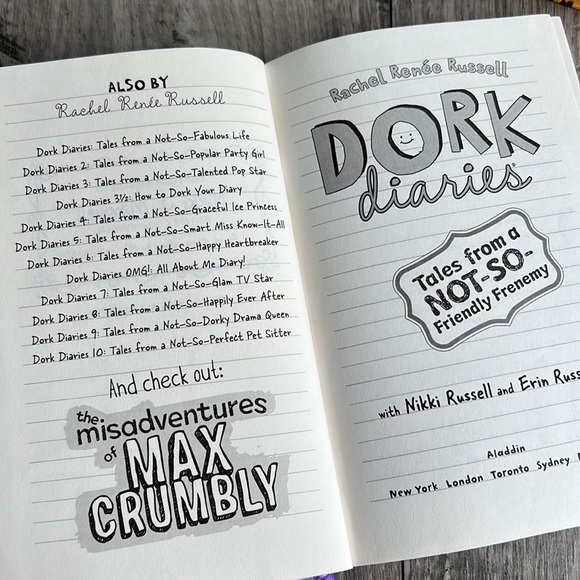 ALSO BY
Rachel Renée Russell
Dork Diaries: Tales from a Not-So-Fabulous Life
Dork Diaries 2: Tales from a Not-So-Popular Party Girl
Dork Diaries 3: Tales from a Not-So-Talented Pop Star
Dork Diaries 3½: How to Dork Your Diary
Dork Diaries 4: Tales from a Not-So-Graceful Ice Princess
Dork Diaries 5: Tales from a Not-So-Smart Miss Know-It-All
Dork Diaries 6: Tales from a Not-So-Happy Heartbreaker
Dork Diaries OMG!: All About Me Diary!
Dork Diaries 7: Tales from a Not-So-Glam TV Star
Dork Diaries 8: Tales from a Not-So-Happily Ever After
Dork Diaries 9: Tales from a Not-So-Dorky Drama Queen
Dork Diaries 10: Tales from a Not-So-Perfect Pet Sitter
And check out:
the misadventures
of MAX
CRUMBLY
Rachel Renée Russell
DORK
diaries
Tales from a
NOT-SO-
Friendly Frenemy
with Nikki Russell and Erin
Aladdin
New York London Toronto Sydney